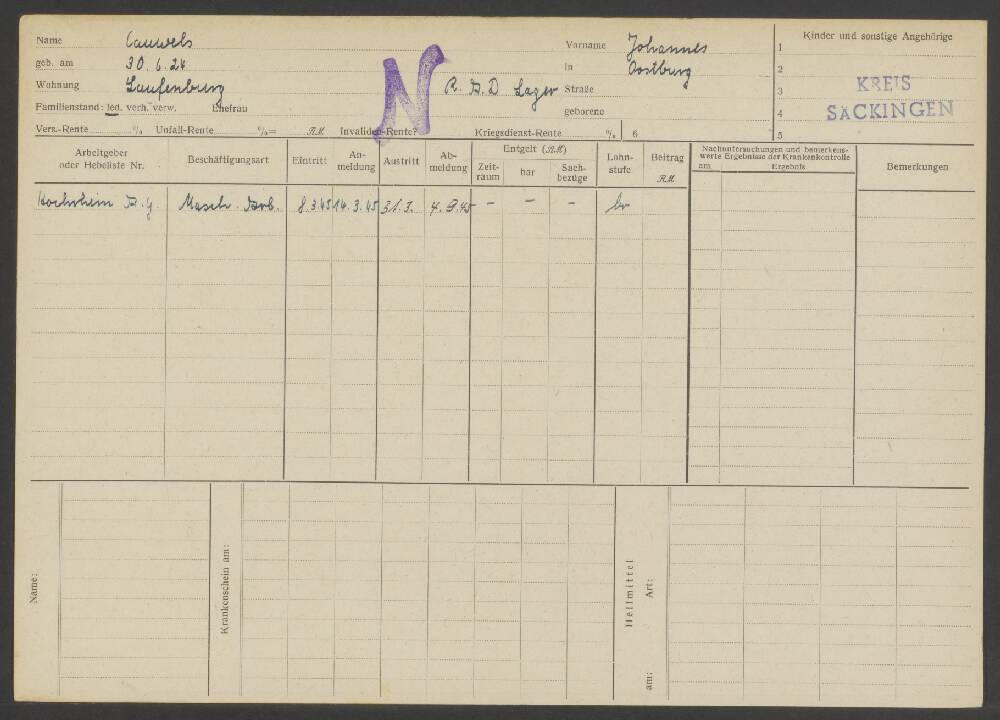 Name Cauwels Vorname Johannes
geb. am 30.6.24 in Oostburg
Wohnung Laufenburg R. A. D Lager Straße
Familienstand: led. verh. verw. Ehefrau geborene
Vers.-Rente % Unfall-Rente %= RM. Invaliden-Rente? Kriegsdienst-Rente % 6
N
Kinder und sonstige Angehörige
1
2
3
4
5
KREIS
SÄCKINGEN
Arbeitgeber oder Hebeliste Nr. Beschäftigungsart Eintritt An-meldung Austritt Ab-meldung Entgelt (RM) Zeit-raum bar Sach-bezüge Lohn-stufe Beitrag RM Nachuntersuchungen und bemerkens-werte Ergebnisse der Krankenkontrolle am Ergebnis Bemerkungen
Masch. 8.3.45 14.3.45 31.3. 4.9.45 - - -
Name:
Krankenschein am:
Heilmittel
Art:
am: